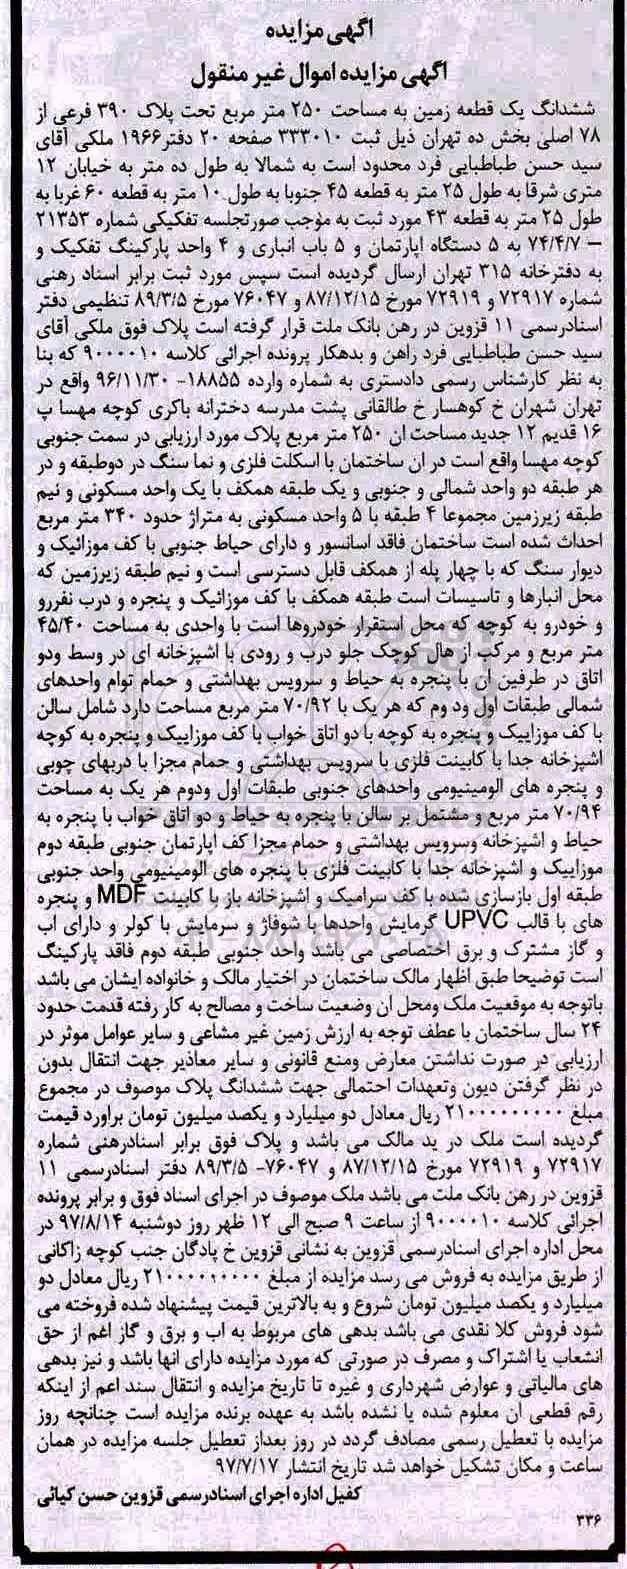 آگهی مزایده
آگهی مزایده اموال غیر منقول
ششدانگ یک قطعه زمین به مساحت ۲۵۰ متر مربع تحت پلاک ۳۹۰ فرعی از
۷۸ اصلی بخش ده تهران ذیل ثبت ۳۳۳۰۱۰ صفحه ۲۰ دفتر۱۹۶۶ ملکی آقای
سید حسن طباطبایی فرد محدود است به شمالا به طول ده متر به خیابان ۱۲
متری شرقا به طول ۲۵ متر به قطعه ۴۵ جنوبا به طول ۱۰ متر به قطعه ۶۰ غربا به
طول ۲۵ متر به قطعه ۴۳ مورد ثبت به موجب صورتجلسه تفکیکی شماره ۲۱۳۵۳
– ۷۴/۴/۷ به ۵ دستگاه اپارتمان و ۵ باب انباری و ۴ واحد پارکینگ تفکیک و
به دفترخانه ۳۱۵ تهران ارسال گردیده است سپس مورد ثبت برابر اسناد رهنی
شماره ۷۲۹۱۷ و ۷۲۹۱۹ مورخ ۸۷/۱۲/۱۵ و ۷۶۰۴۷ مورخ ۸۹/۳/۵ تنظیمی دفتر
اسنادرسمی ۱۱ قزوین در رهن بانک ملت قرار گرفته است پلاک فوق ملکی آقای
سید حسن طباطبایی فرد راهن و بدهکار پرونده اجرائی کلاسه ۹۰۰۰۰۱۰ که بنا
به نظر کارشناس رسمی دادستری به شماره وارده ۱۸۸۵۵- ۹۶/۱۱/۳۰ واقع در
تهران شهران خ کوهسار خ طالقانی پشت مدرسه دخترانه باکری کوچه مهسا پ
۱۶ قدیم ۱۲ جدید مساحت ان ۲۵۰ متر مربع پلاک مورد ارزیابی در سمت جنوبی
کوچه مهسا واقع است در ان ساختمان با اسکلت فلزی و نما سنگ در دوطبقه و در
هر طبقه دو واحد شمالی و جنوبی و یک طبقه همکف با یک واحد مسکونی و نیم
طبقه زیرزمین مجموعا ۴ طبقه با ۵ واحد مسکونی به متراژ حدود ۳۴۰ متر مربع
احداث شده است ساختمان فاقد اسانسور و دارای حیاط جنوبی با کف موزائیک و
دیوار سنگ که با چهار پله از همکف قابل دسترسی است و نیم طبقه زیرزمین که
محل انبارها و تاسیسات است طبقه همکف با کف موزائیک و پنجره و درب نفررو
و خودرو به کوچه که محل استقرار خودروها است با واحدی به مساحت ۴۵/۴۰
متر مربع و مرکب از هال کوچک جلو درب و رودی با اشپزخانه ای در وسط ودو
اتاق در طرفین ان با پنجره به حیاط و سرویس بهداشتی و حمام توام واحدهای
شمالی طبقات اول ود وم که هر یک با ۷۰/۹۲ متر مربع مساحت دارد شامل سالن
با کف موزاییک و پنجره به کوچه با دو اتاق خواب با کف موزاییک و پنجره به کوچه
اشپزخانه جدا با کابینت فلزی با سرویس بهداشتی و حمام مجزا با دربهای چوبی
و پنجره های الومینیومی واحدهای جنوبی طبقات اول ودوم هر یک به مساحت
۷۰/۹۴ متر مربع و مشتمل بر سالن با پنجره به حیاط و دو اتاق خواب با پنجره به
حیاط و اشپزخانه وسرویس بهداشتی و حمام مجزا کف اپارتمان جنوبی طبقه دوم
موزاییک و اشپزخانه جدا با کابینت فلزی با پنجره های الومینیومی واحد جنوبی
طبقه اول بازسازی شده با کف سرامیک و اشپزخانه باز با کابینت MDF و پنجره
های با قالب UPVC گرمایش واحدها با شوفاژ و سرمایش با کولر و دارای اب
و گاز مشترک و برق اختصاصی می باشد واحد جنوبی طبقه دوم فاقد پارکینگ
است توضیحا طبق اظهار مالک ساختمان در اختیار مالک و خانواده ایشان می باشد
باتوجه به موقعیت ملک ومحل ان وضعیت ساخت و مصالح به کار رفته قدمت حدود
۲۴ سال ساختمان با عطف توجه به ارزش زمین غیر مشاعی و سایر عوامل موثر در
ارزیابی در صورت نداشتن معارض ومنع قانونی و سایر معاذیر جهت انتقال بدون
در نظر گرفتن دیون وتعهدات احتمالی جهت ششدانگ پلاک موصوف در مجموع
مبلغ ۲۱۰۰۰۰۰۰۰۰۰ ریال معادل دو میلیارد و یکصد میلیون تومان براورد قیمت
گردیده است ملک در ید مالک می باشد و پلاک فوق برابر اسنادرهنی شماره
۷۲۹۱۷ و ۷۲۹۱۹ مورخ ۸۷/۱۲/۱۵ و ۷۶۰۴۷- ۸۹/۳/۵ دفتر اسنادرسمی ۱۱
قزوین در رهن بانک ملت می باشد ملک موصوف در اجرای اسناد فوق و برابر پرونده
اجرائی کلاسه ۹۰۰۰۰۱۰ از ساعت ۹ صبح الی ۱۲ ظهر روز دوشنبه ۹۷/۸/۱۴ در
محل اداره اجرای اسنادرسمی قزوین به نشانی قزوین خ پادگان جنب کوچه زاکانی
از طریق مزایده به فروش می رسد مزایده از مبلغ ۲۱۰۰۰۰۰۰۰۰۰ ریال معادل دو
میلیارد و یکصد میلیون تومان شروع و به بالاترین قیمت پیشنهاد شده فروخته می
شود فروش کلا نقدی می باشد بدهی های مربوط به اب و برق و گاز اعم از حق
انشعاب یا اشتراک و مصرف در صورتی که مورد مزایده دارای انها باشد و نیز بدهی
های مالیاتی و عوارض شهرداری و غیره تا تاریخ مزایده و انتقال سند اعم از اینکه
رقم قطعی ان معلوم شده یا نشده باشد به عهده برنده مزایده است چنانچه روز
مزایده با تعطیل رسمی مصادف گردد در روز بعداز تعطیل جلسه مزایده در همان
ساعت و مکان تشکیل خواهد شد تاریخ انتشار ۹۷/۷/۱۷
کفیل اداره اجرای اسنادرسمی قزوین حسن کیائی
۳۳۶